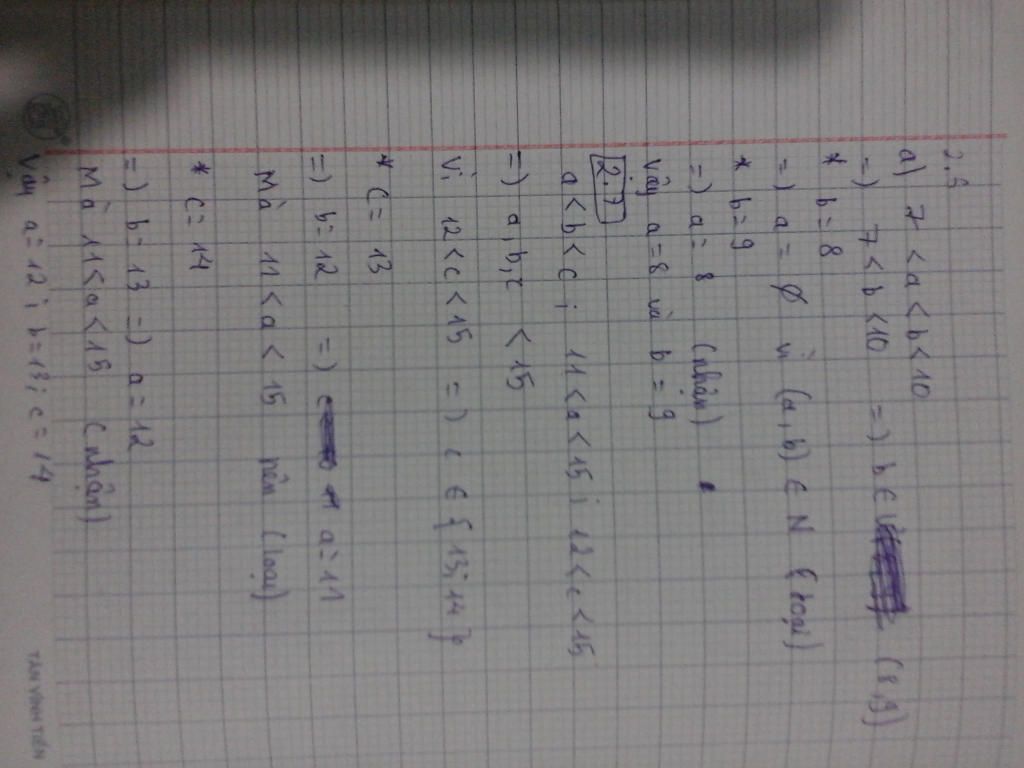 2.9
a) 7 < a < b < 10
=) 7 < b < 10 =) b ∈ (8,9)
* b = 8
=) a = ∅ vì (a, b) ∈ N (loại)
* b = 9
=) a = 8 (nhận)
Vậy a = 8 và b = 9
2.7
a < b < c ; 11 < a < 15 ; 12 < c < 15
=) a, b, c < 15
Vì 12 < c < 15 =) c ∈ { 13; 14 }
* C = 13
=) b = 12 =) a = 11
Mà 11 < a < 15 nên (loại)
* c = 14
=) b = 13 =) a = 12
Mà 11 < a < 15 (nhận)
Vậy a = 12 ; b = 13 ; c = 14
TÂN VĨNH TIẾN